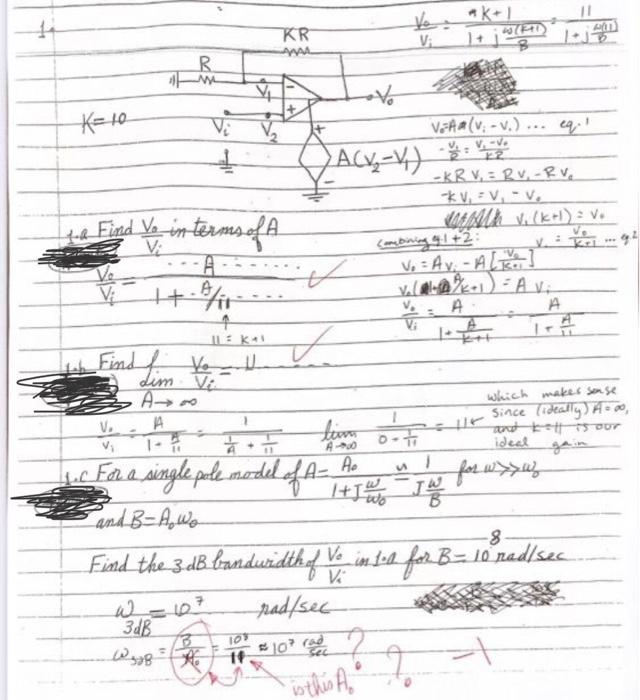 1.
Vo/Vi = K+1 / 1 + j ω(K+1)/B = 11 / 1 + j ω(11)/B
KR
R
V1
-
+
Vo
K=10
Vi
V2
+
-
A(V2-V1)
... eq. 1
-V1/R = V1-Vo/KR
-KRV1 = RV1 - RVo
-KV1 = V1 - Vo
V1(K+1) = Vo
V1 = Vo/K+1 ... eq 2
1.a Find Vo/Vi in terms of A
Vo/Vi = A / 1 + A/11
11 = K+1
combining eq 1+2:
Vo = AVi - A[Vo/K+1]
= AVi
Vo/Vi = A / 1 + A/K+1 = A / 1 + A/11
1.b Find lim A→∞ Vo/Vi = 11
Vo/Vi = A / 1 + A/11 = 1 / 1/A + 1/11
lim A→∞ 1 / 0 + 1/11 = 11
which makes sense
since (ideally) A=∞,
and K=11 is our
ideal gain
1.c For a single pole model of A = Ao / 1+J ω/ωo ≈ 1 / J ω/B for ω>>ωo
and B = Aoωo
Find the 3dB bandwidth of Vo/Vi in 1.a for B = 10^8 rad/sec
ω3dB = 10^7 rad/sec
ω3dB = B/Ao = 10^8/11 ≈ 10^7 rad/sec ?
is this Ao ? -1